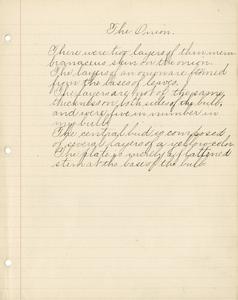 The Onion.
There were two layers of thin mem
branaceus skin on the onion.
The layers of an onion are formed
from the bases of leaves.
The layers are not of the same
thickness on both sides of the bulb,
and were five in number in
my bulb.
The central bud is composed
of several layers of a yellow color.
The plate is merely a flattened
stem at the base of the bulb.